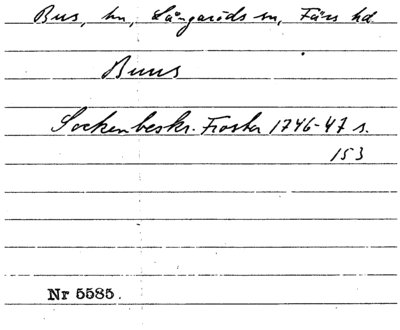 Bus, hn, Långaröds sn, Färs hd
Buus
Sockenbeskr. Frosta 1746-47 s.
153
Nr 5585.